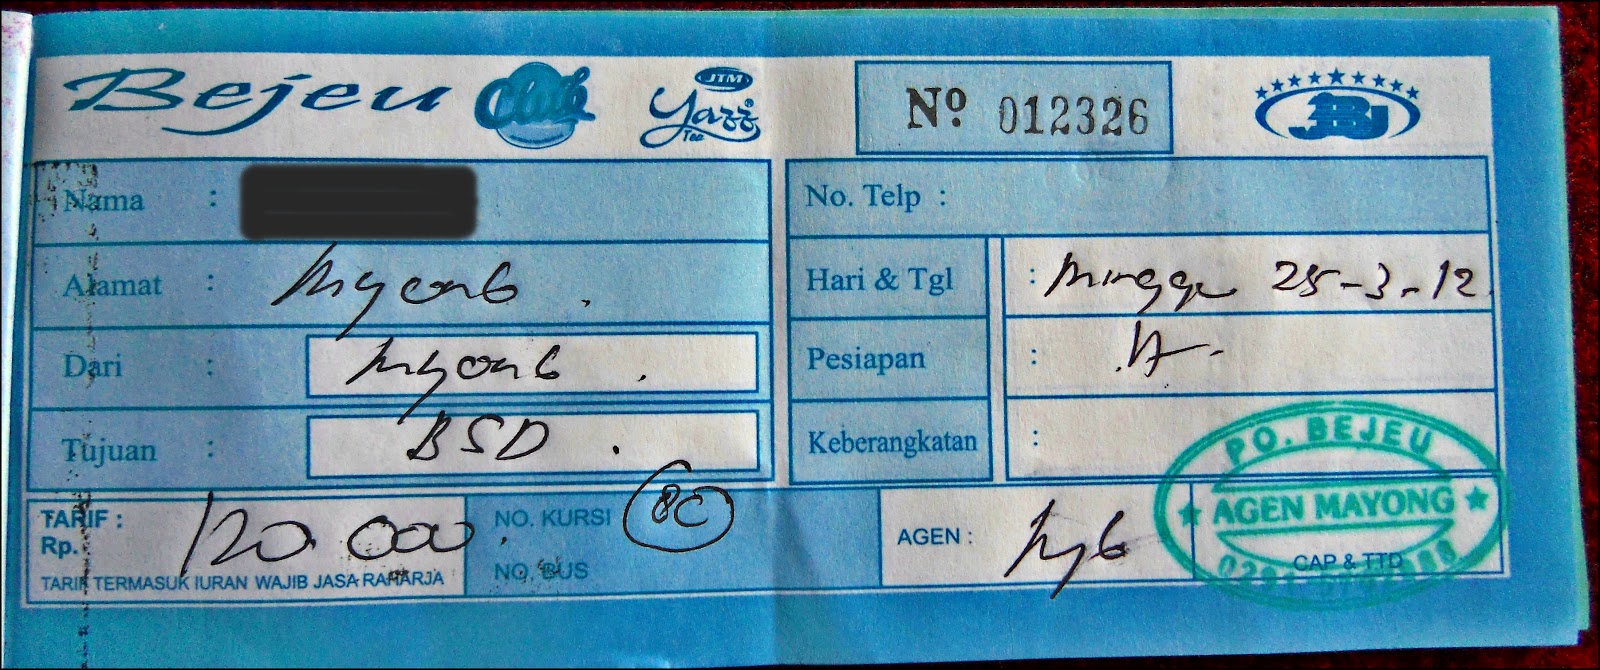 Bejeu Club JTM Yazz Tea
Nº 012326
JBJ
Nama :
No. Telp :
Alamat : Myong .
Hari & Tgl : Minggu 25-3-12
Dari : Myong .
Pesiapan :
Tujuan : BSD .
Keberangkatan :
PO. BEJEU
AGEN MAYONG
TARIF :
Rp. 120.000
TARIF TERMASUK IURAN WAJIB JASA RAHARJA
NO. KURSI 8C
NO. BUS
AGEN : Myg
CAP & TTD